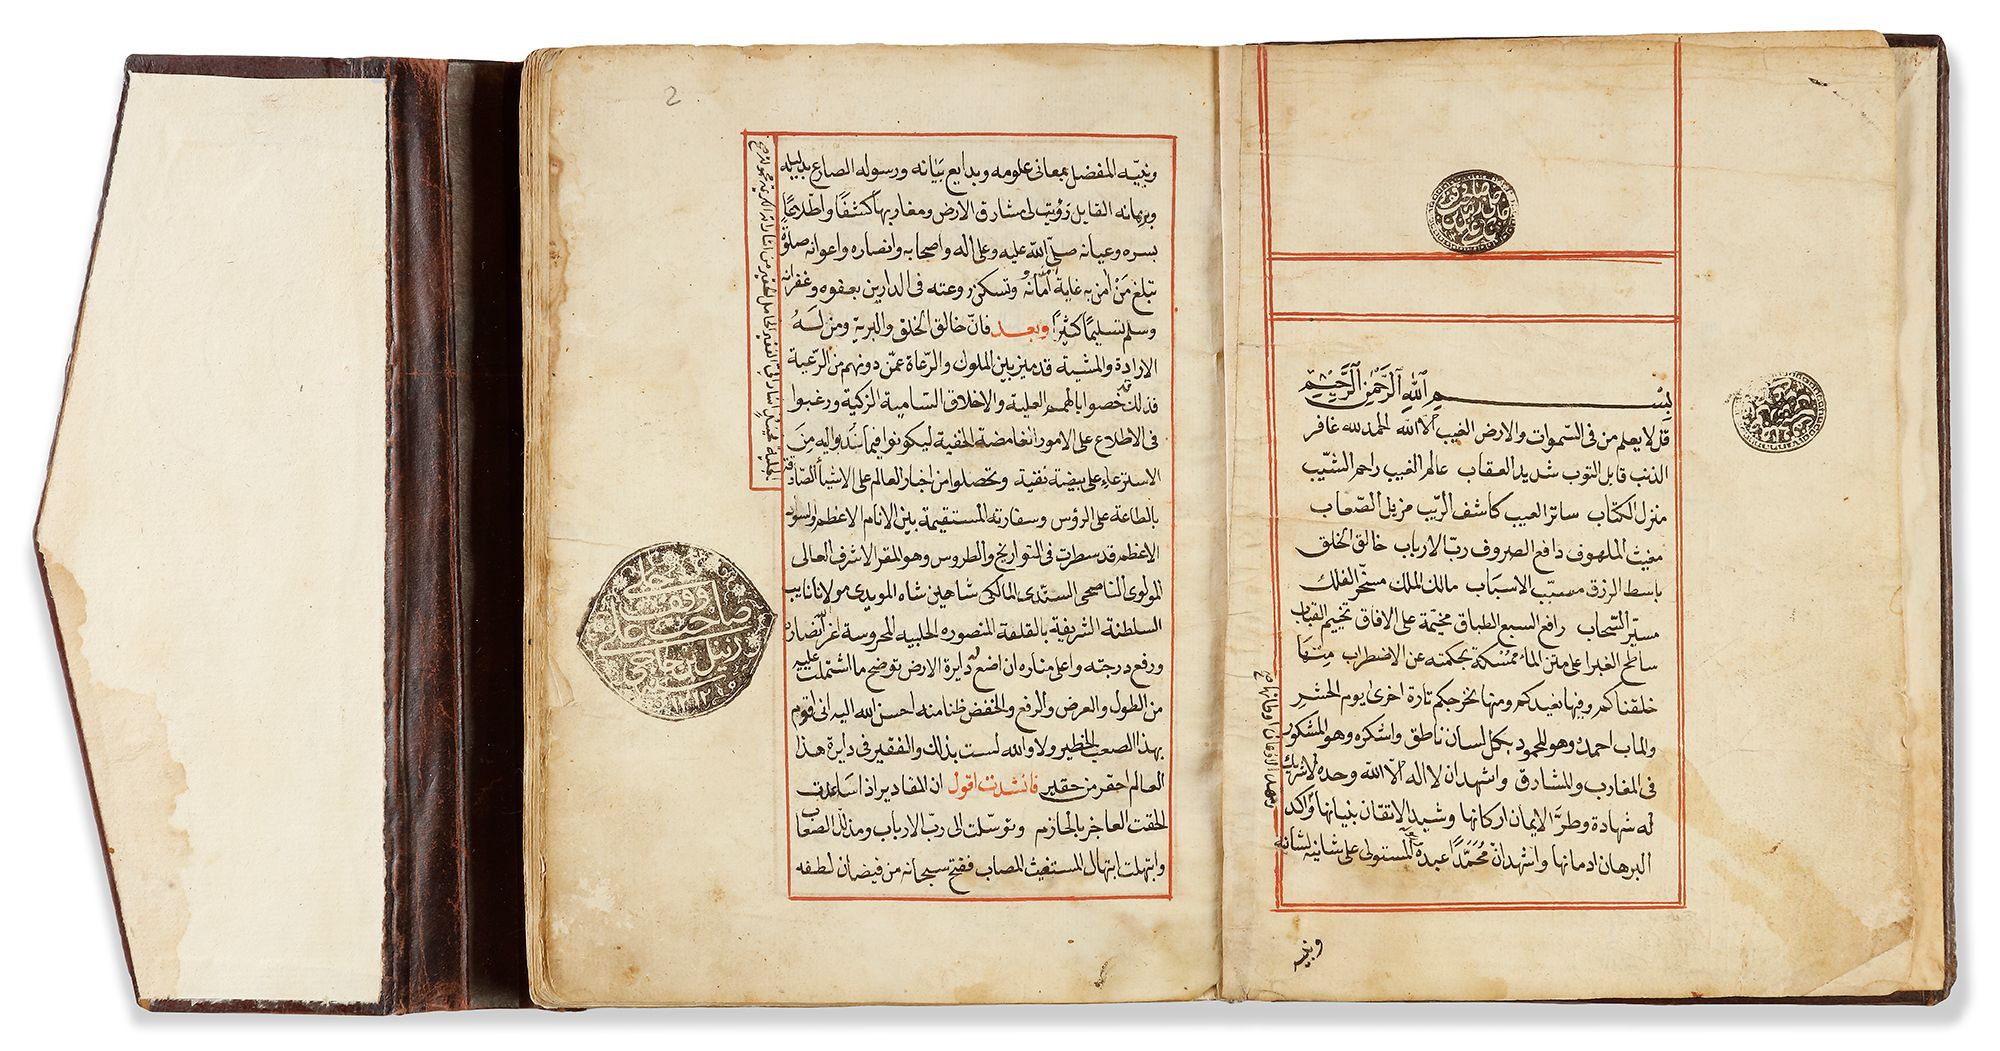 بسم الله الرحمن الرحيم
قل لا يعلم من فى السموات والارض الغيب الا الله الحمد لله غافر
الذنب قابل التوب شديد العقاب عالم الغيب راحم الشيب
منزل الكتاب ساتر العيب كاشف الريب مزيل الصعاب
مغيث الملهوف دافع الصروف ربّ الارباب خالق الخلق
باسط الرزق مسبّب الاسباب مالك الملك مسخّر الفلك
مسيّر السّحاب رافع السبع الطباق مخيّمة على الافاق تخييم القباب
ساطح الغبرا على متن الماء ممسكة بحكمته عن الاضطراب منها
خلقناكم وفيها نعيدكم ومنها نخرجكم تارة اخرى يوم الحشر
والماب احمده وهو المحمود بكل لسان ناطق واشكره وهو المشكور
فى المغارب والمشارق واشهد ان لا اله الا الله وحده لا شريك
له شهادة وطّد الايمان اركانها وشيد الاتقان بنيانها واكد
البرهان ادمانها واشهد انّ محمّدًا عبده المستولى على شانيه لشانه
ونبيه
2
ونبيّه المفضل بمعانى علومه وبدايع بيانه ورسوله الصادع بدليله
وبرهانه القايل زويت لى مشارق الارض ومغاربها كشفًا واطلاعًا
بسره وعيانه صلى الله عليه وعلى اله واصحابه وانصاره واعوانه صلوة
تبلغ من امن به غاية امانه وتسكن روعته فى الدارين بعفوه وغفرانه
وسلم تسليمًا كثيرًا وبعد فانّ خالق الخلق والبرية ومن له
الارادة والمشية قد ميز بين الملوك والرّعاة عمّن دونهم من الرّعية
فذلك قد خصوا بالهمم العلية والاخلاق السامية الزكية ورغبوا
فى الاطلاع على الامور الغامضة الخفية ليكونوا فيما ندبوا اليه من
الاسترعاء على بيضة نقية وتحصلوا من اخبار العالم على الاشيا الصادقة
بالطاعة على الرؤس وسفارته المستقيمة بين الانام الاعظم والسواد
الاعظم قد سطرت فى التواريخ والطروس وهو المقر الاشرف العالى
المولوى الناصحى السيّدى المالكى شاهين شاه المويدى مولانا نايب
السلطنة الشريفة بالقلعة المنصوره الحلبيه المحروسة اعز الله انصاره
ورفع درجته واعلى مناره ان اضع له دايرة الارض توضح ما اشتملت عليه
من الطول والعرض والرفع والخفض ظنا منه احسن الله اليه انى اقوم
بهذا الصعب الخطير ولا والله لست بذلك والفقير فى دايرة هذا
العالم احقر من حقير فانشدت اقول ان المقادير اذا ساعدت
الحقت العاجز بالحازم وتوسلت الى ربّ الارباب ومذلل الصعاب
وابتهلت ابتهال المستغيث المصاب ففتح سبحانه من فيضان لطفه